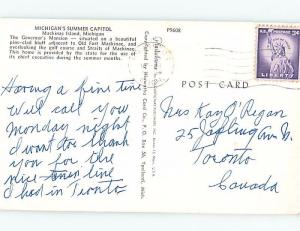 MICHIGAN'S SUMMER CAPITOL
Mackinac Island, Michigan
The Governor's Mansion — situated on a beautiful
pine-clad bluff adjacent to Old Fort Mackinac, and
overlooking the golf course and Straits of Mackinac.
This home is provided by the state for the use of
its chief executive during the summer months.
P9608
POST CARD
U.S. POSTAGE 3¢
LIBERTY
Having a fine time
Will call you
Monday night
I want to thank
you for the
nice time
I had in Tronto
Mrs Kay O'Regan
25
Toronto
Canada